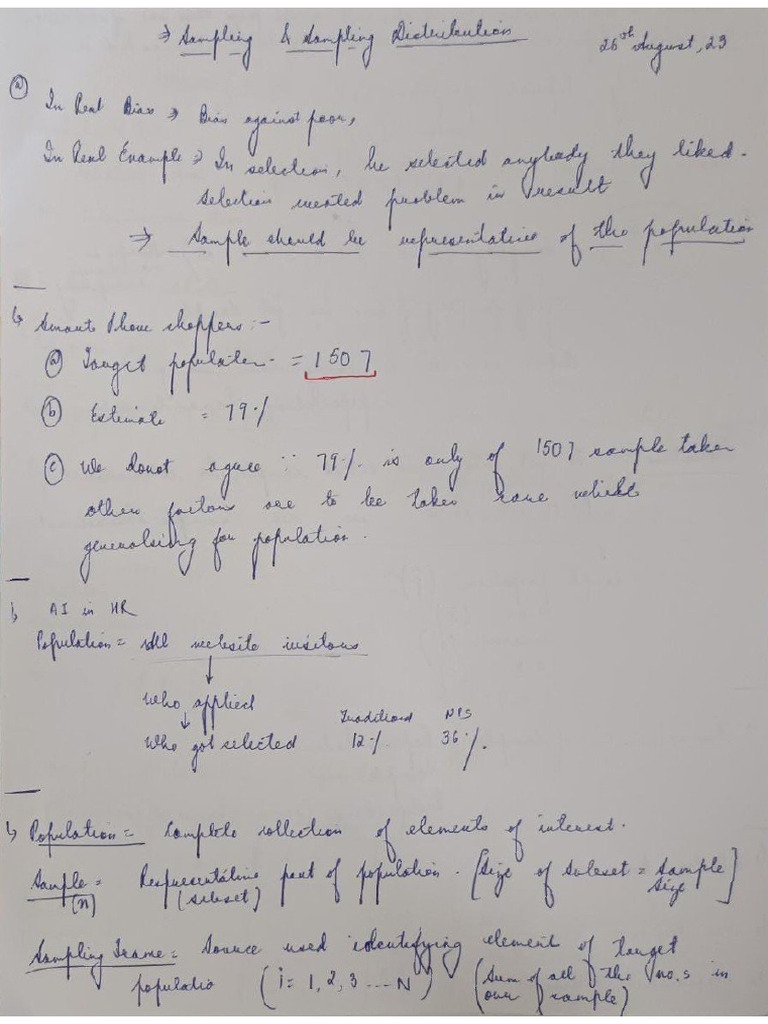 ⇒ Sampling & Sampling Distribution
26th August, 23
(a)
In Real Bias ⇒ Bias against poor,
In Real Example ⇒ In selection, he selected anybody they liked.
Selection created problem in result
⇒ Sample should be representative of the population
↳ Smart Phone shoppers :-
(a) Target population = 1507
(b) Estimate = 79%
(c) We donot agree ∵ 79% is only of 1507 sample taken
other factors are to be taken
generalising for population.
↳ AI in HR
Population = All website visitors
↓
Who applied
↓ Traditional NPS
Who got selected 12% 36%.
↳ Population = Complete collection of elements of interest.
Sample = Representative part of population. [Size of subset = Sample
(n) (subset) Size]
Sampling Frame = Source used identifying element of target
populatio (i = 1, 2, 3 .... N) (Sum of all the no.s in
our sample)